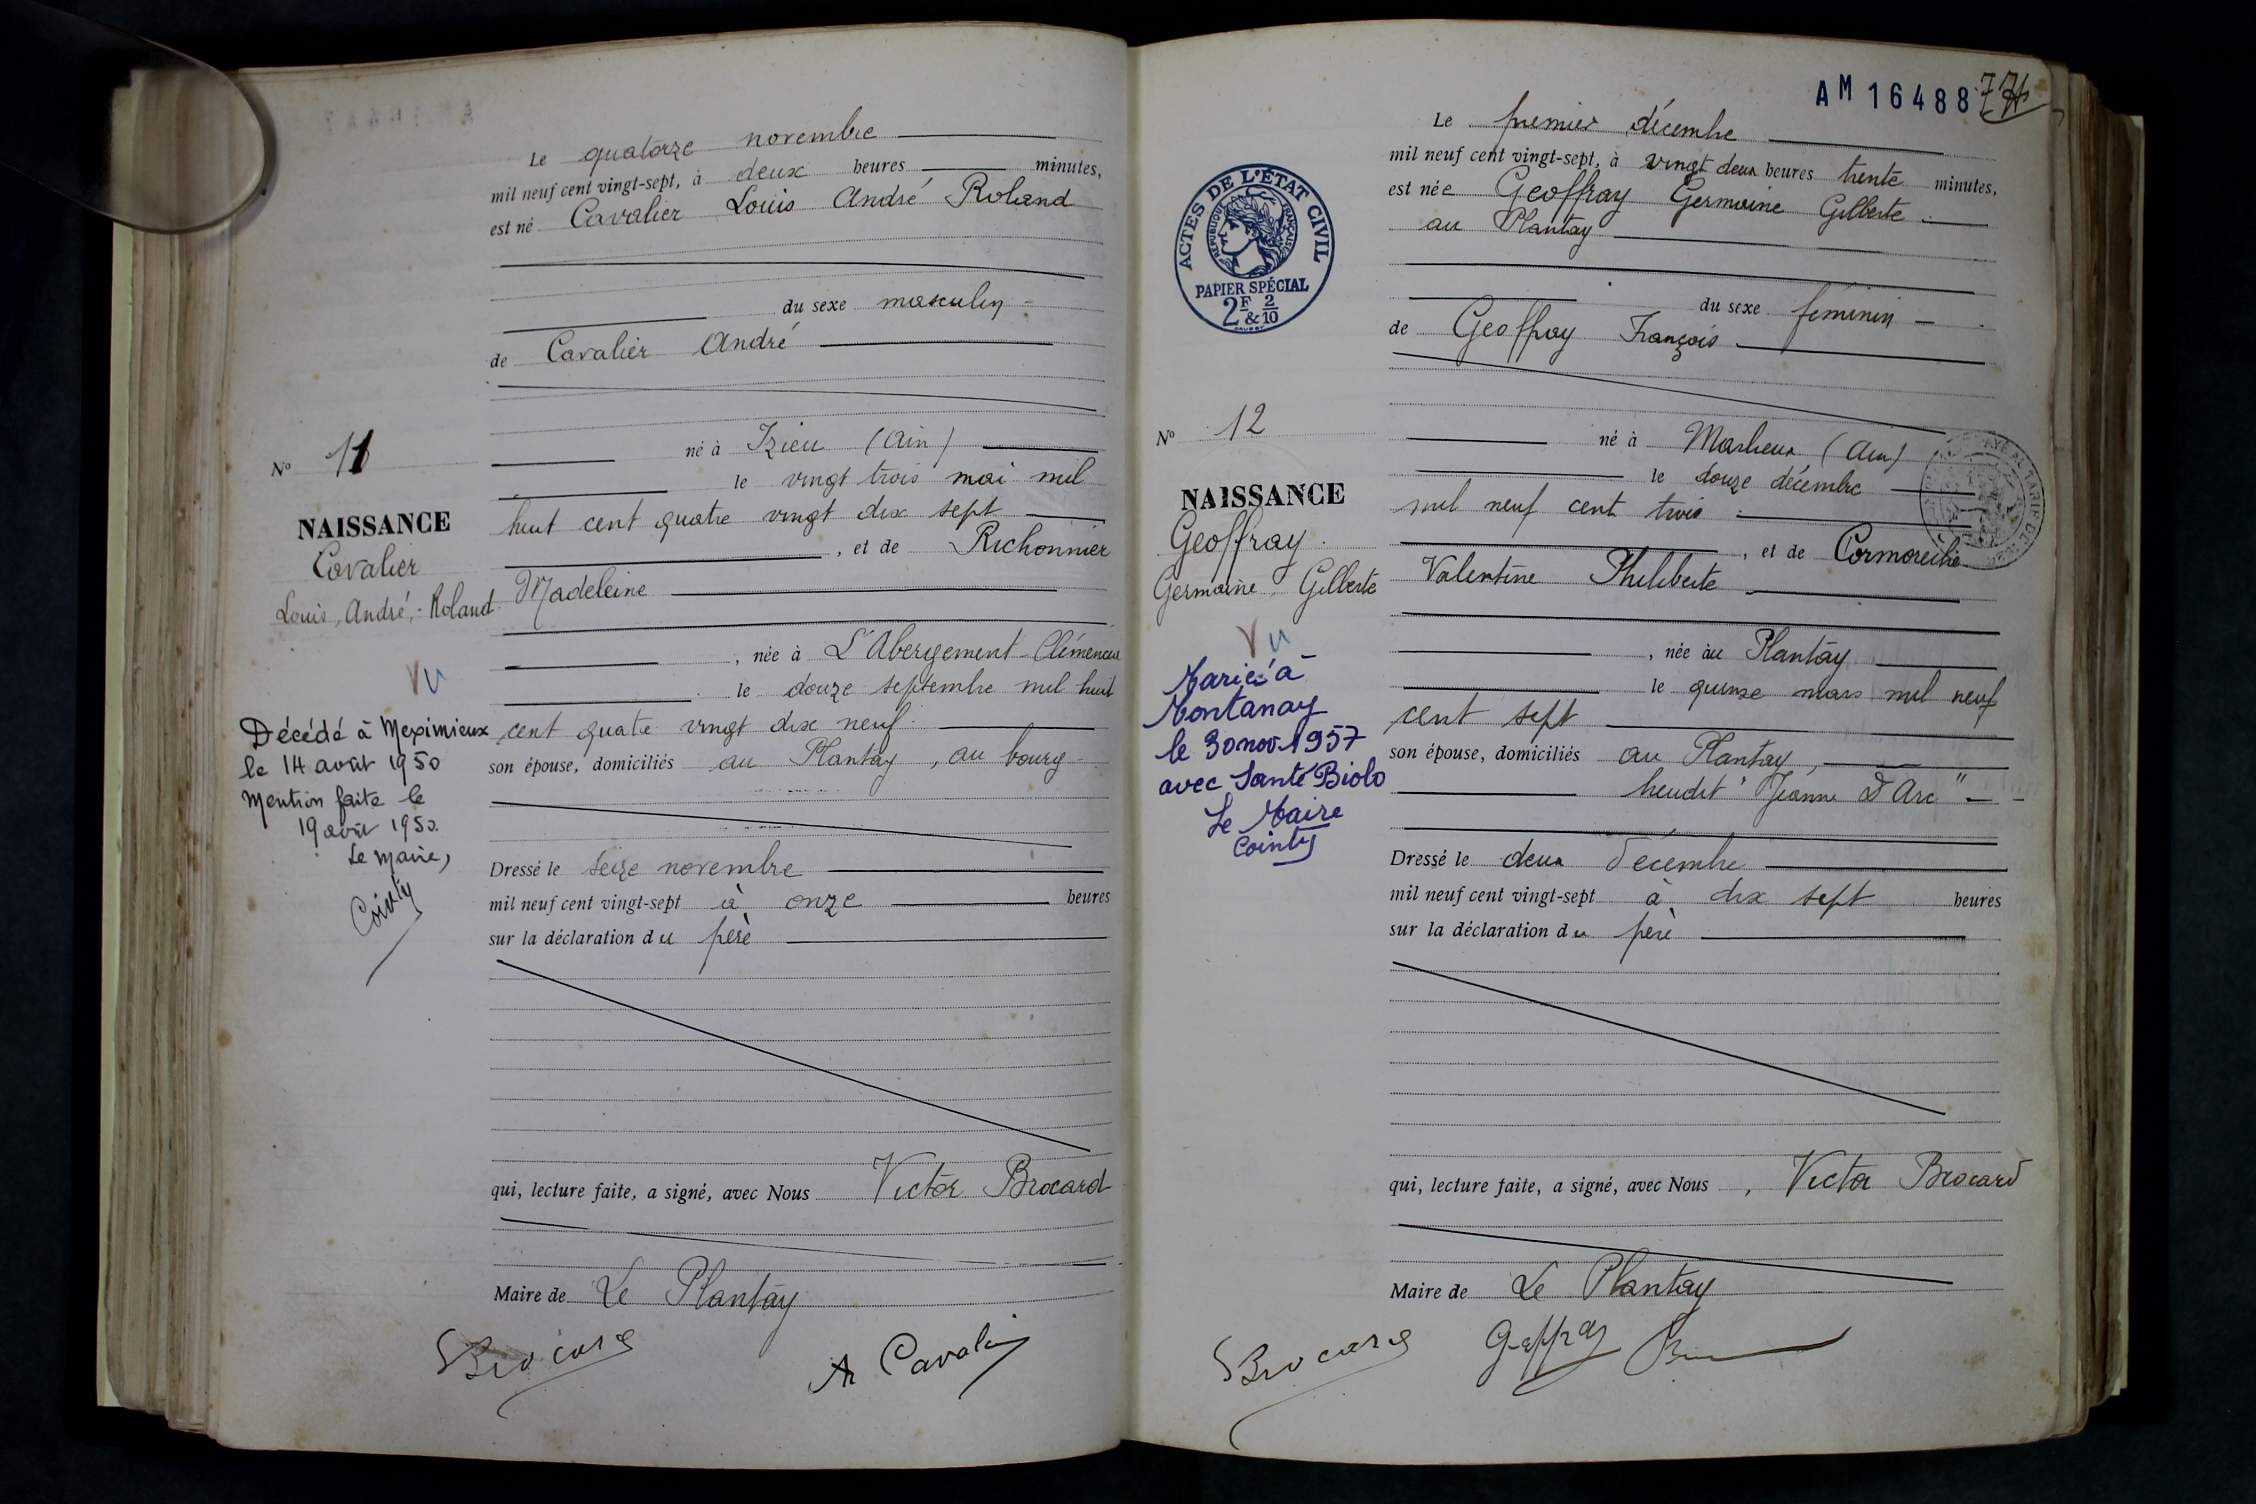 Le quatorze novembre
mil neuf cent vingt-sept, à deux heures minutes,
est né Cavalier Louis André Roland
du sexe masculin
de Cavalier André
né à Izieu (Ain)
le vingt trois mai mil
huit cent quatre vingt dix sept
, et de Richonnier
Madeleine
, née à L'Abergement-Clémencia
le douze septembre mil huit
cent quatre vingt dix neuf
son épouse, domiciliés au Plantay, au bourg
Dressé le seize novembre
mil neuf cent vingt-sept à onze heures
sur la déclaration du père
qui, lecture faite, a signé, avec Nous Victor Brocard
Maire de Le Plantay
Brocard
A Cavalier
No 11
NAISSANCE
Cavalier
Louis, André, Roland
Vu
Décédé à Meximieux
le 14 août 1950
Mention faite le
19 août 1950.
Le Maire,
Cointy
AM 16488
Le premier décembre
mil neuf cent vingt-sept, à vingt deux heures trente minutes,
est née Geoffray Germaine Gilberte
au Plantay
du sexe féminin
de Geoffray François
né à Marlieux (Ain)
le douze décembre
mil neuf cent trois
, et de Cormorèche
Valentine Philiberte
, née au Plantay
le quinze mars mil neuf
cent sept
son épouse, domiciliés au Plantay,
lieudit "Jeanne d'Arc"
Dressé le deux décembre
mil neuf cent vingt-sept à dix sept heures
sur la déclaration du père
qui, lecture faite, a signé, avec Nous, Victor Brocard
Maire de Le Plantay
Brocard
Geoffray
ACTES DE L'ÉTAT CIVIL
RÉPUBLIQUE FRANÇAISE
PAPIER SPÉCIAL
2F & 2/10
No 12
NAISSANCE
Geoffray
Germaine, Gilberte
Vu
Mariée à
Montanay
le 30 nov. 1957
avec Santé Biolo
Le Maire
Cointy